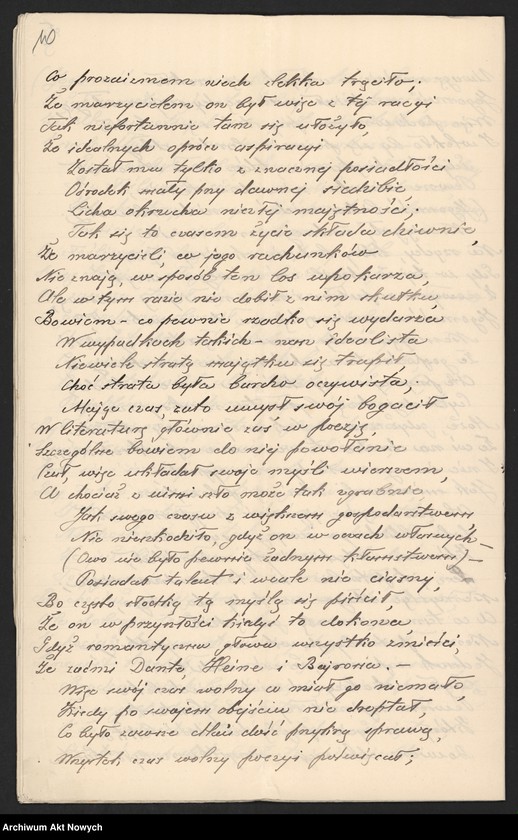 10
Co prozaicznem niech zlekka trąciło;
Że marzycielem on był więc z tej racyi
Tak niefortunnie tam się ułożyło,
Że idealnych oprócz aspiracyi
Został mu tylko z znacznej posiadłości
Ośrodek mały przy dawnej siedzibie
Licha okrucha niezłej majętności;
Tak się to czasem życie składa dziwnie,
Że marzycieli, co jego rachunków
Nie znają, w sposób ten los upokarza,
Ale w tym razie nie dobił z nim
Bowiem – co pewnie rzadko się wydarza
W wypadkach takich – nasz idealista
Niewiele stratą majątku się trapił
Choć strata była bardzo oczywista;
Mając czas, zato umysł swój bogacił
W literaturę głównie zaś w poezję
Szczególne bowiem do niej powołanie
Czuł, więc układał swoje myśli wierszem,
A chociaż z nimi szło może tak zgrabnie
Jak swego czasu z większem gospodarstwem
Nie szkodziło, gdyż on w oczach własnych –
(Owo nie było pewnie żadnym kłamstwem) –
Posiadał talent i wcale nie ciasny,
Bo często słodką tą myślą się pieścił,
Że on w przyszłości kiedyś to dokona,
Gdyż romantyczna głowa wszystko zmieści,
Że zaćmi Danta, Heine i Bajrona. –
Więc swój czas wolny co miał go niemało,
Kiedy po swojem obejściu nie dreptał,
Co było zawsze dlań dość przykrą sprawą,
Wszystek czas wolny poezyi poświęcał;
Archiwum Akt Nowych